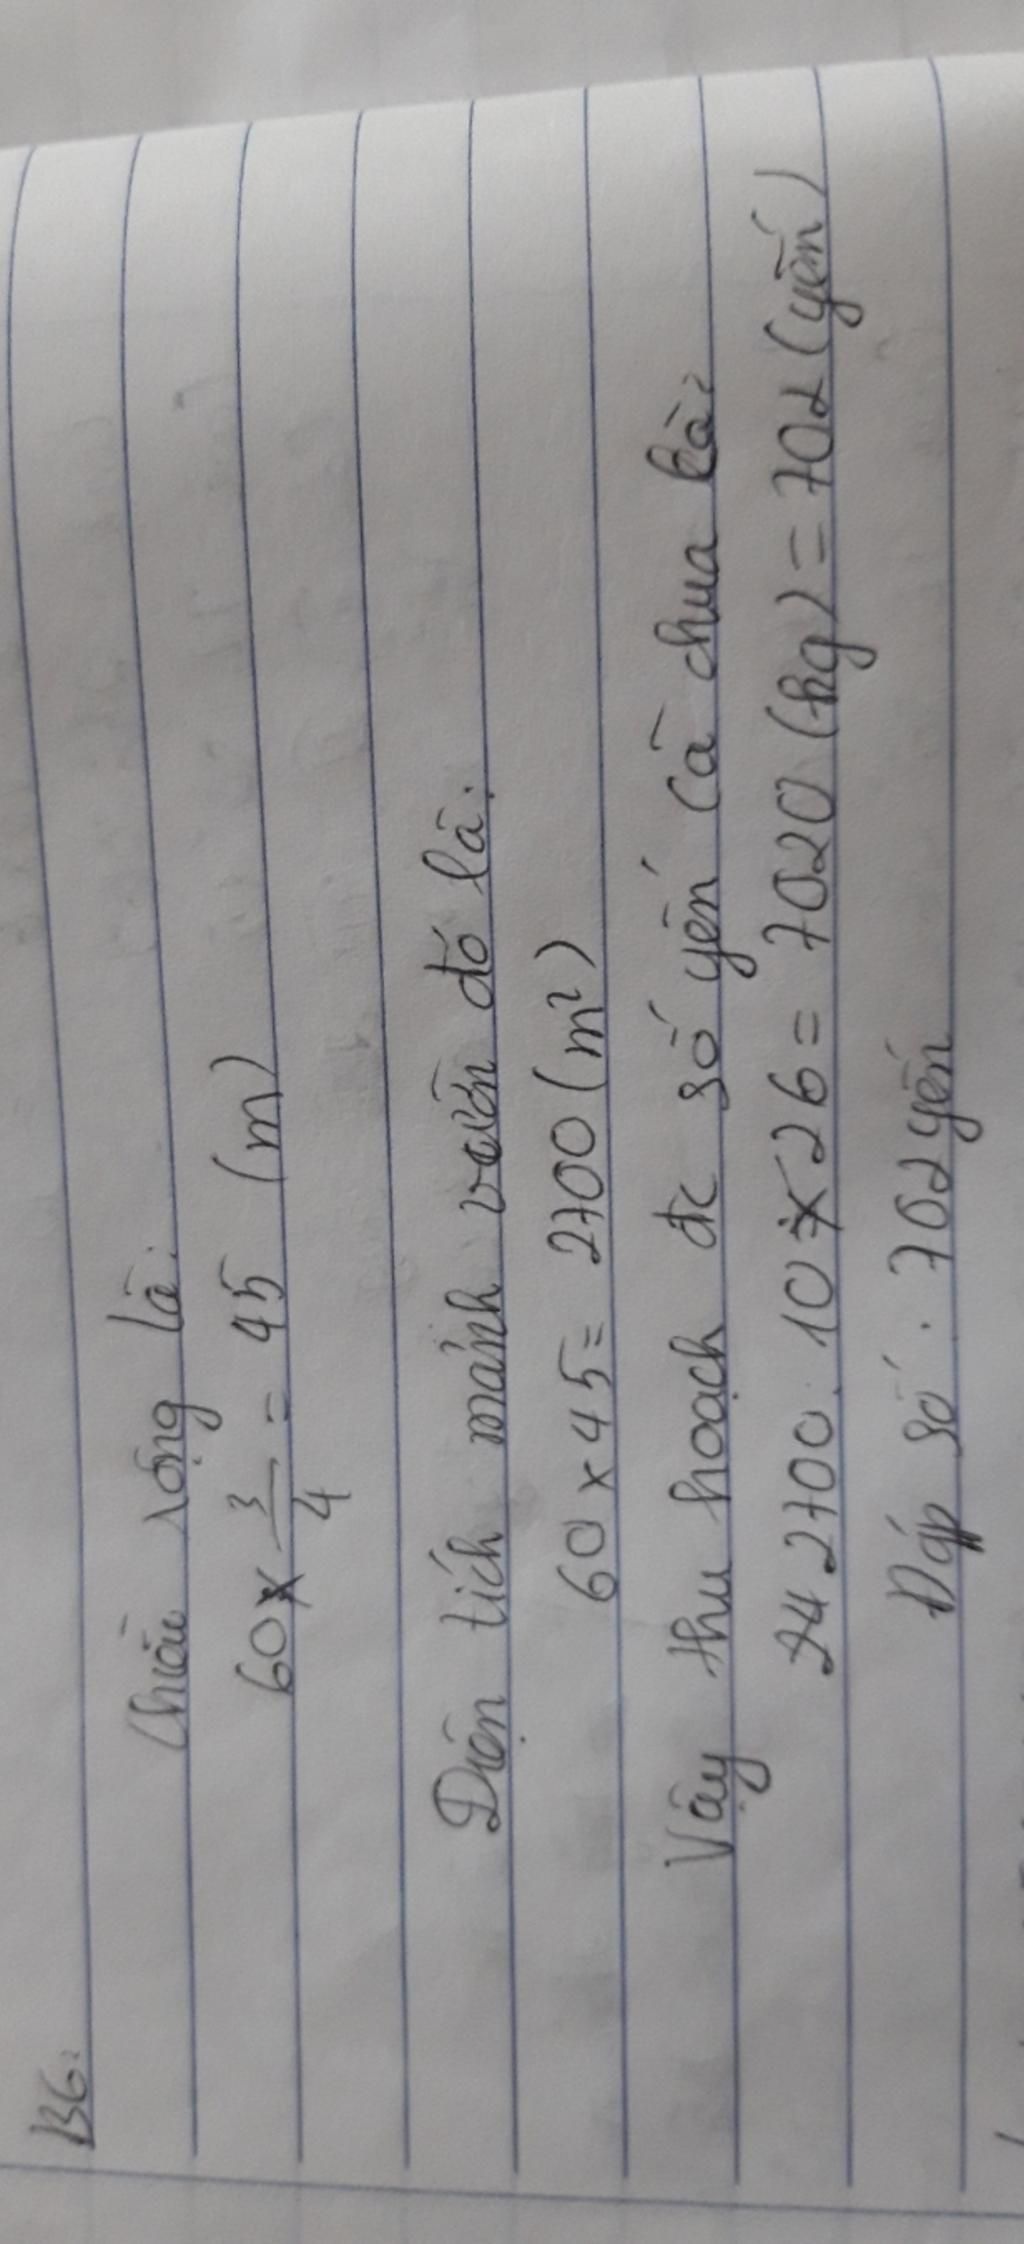 BG:
Chiều rộng là:
60 x 3/4 = 45 (m)
Diện tích mảnh vườn đó là:
60 x 45 = 2700 (m²)
Vậy thu hoạch đc số yến cà chua là:
2700 : 10 x 26 = 7020 (kg) = 702 (yến)
Đáp số : 702 yến